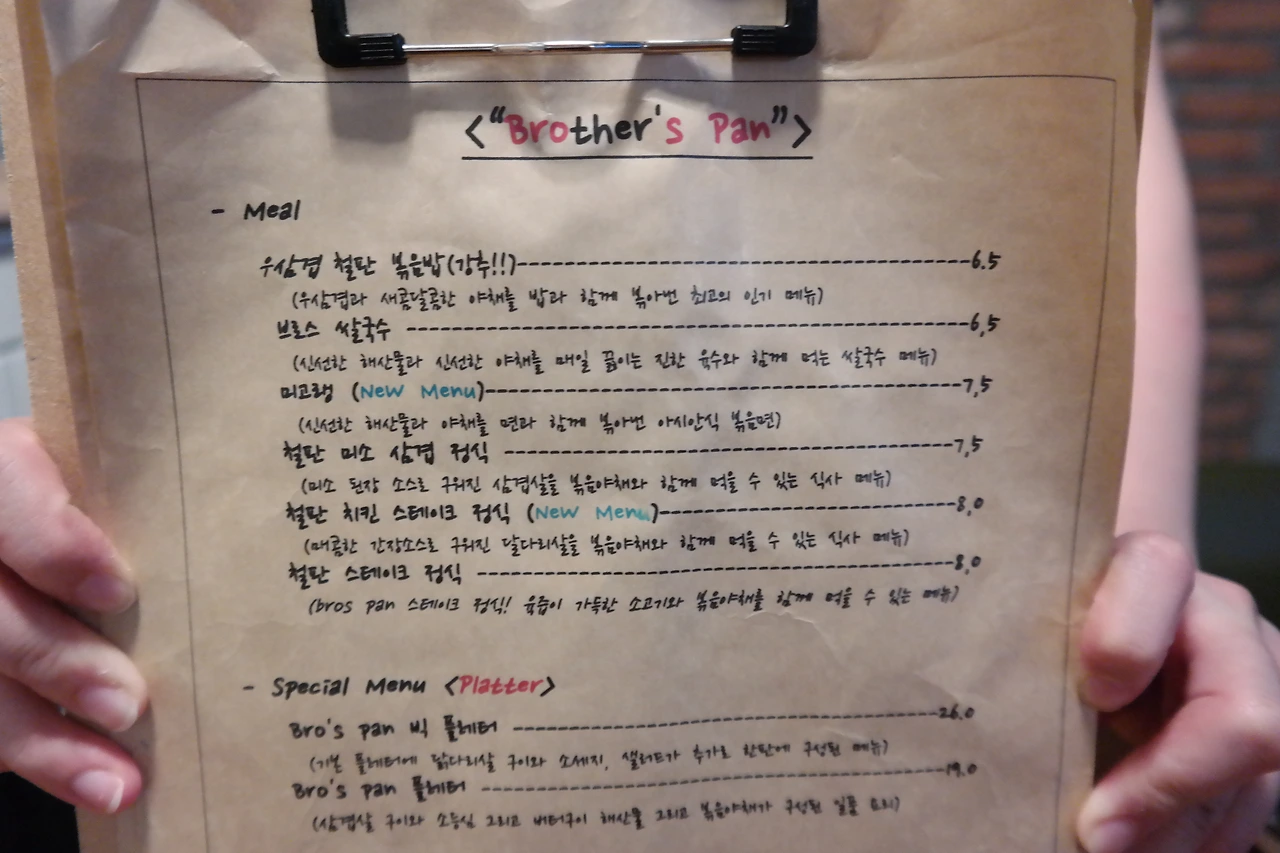 <"Brother's Pan">
- Meal
우삼겹 철판 볶음밥(강추!!)--------------------6.5
(우삼겹과 새콤달콤한 야채를 밥과 함께 볶아번 최고의 인기 메뉴)
브로스 쌀국수 --------------------6,5
(신선한 해산물과 신선한 야채를 매일 끓이는 진한 육수와 함께 먹는 쌀국수 메뉴)
미고랭 (New Menu)--------------------7,5
(신선한 해산물과 야채를 면과 함께 볶아번 아시안식 볶음면)
철판 미소 삼겹 정식 --------------------7,5
(미소 된장 소스로 구워진 삼겹살을 볶음야채와 함께 먹을 수 있는 식사 메뉴)
철판 치킨 스테이크 정식 (New Menu)--------------------8,0
(매콤한 간장소스로 구워진 닭다리살을 볶음야채와 함께 먹을 수 있는 식사 메뉴)
철판 스테이크 정식 --------------------8,0
(bros pan 스테이크 정식! 육즙이 가득한 소고기와 볶음야채를 함께 먹을 수 있는 메뉴)
- Special Menu <Platter>
Bro's pan 빅 플레터 --------------------26.0
(기본 플레터에 닭다리살 구이와 소세지, 샐러드가 추가로 한판에 구성된 메뉴)
Bro's pan 플레터 --------------------19.0
(삼겹살 구이와 소등심 그리고 버터구이 해산물 그리고 볶음야채가 구성된 일품 요리)